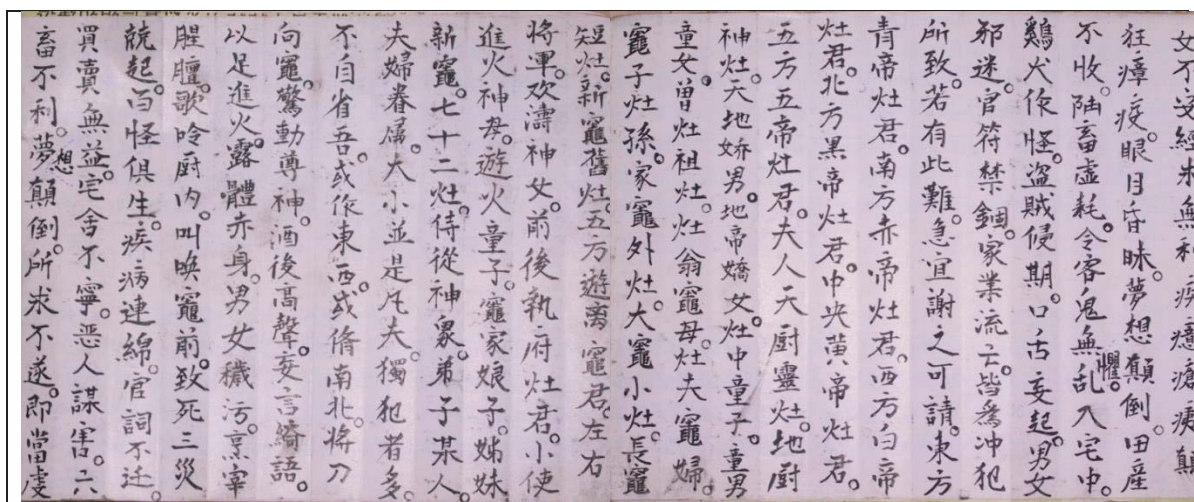 女不安經求無利疾瘡痍顛
狂瘴疫。眼目昏昧。夢想顛倒。田産
不收。陆畜虛耗。令客鬼無懼乱入宅中。
鷄犬作怪。盜賊侵期。口舌妄起。男女
邪迷。官符禁錮。家業流亡。皆爲冲犯
所致。若有此難。急宜謝之可請。東方
青帝灶君。南方赤帝灶君。西方白帝
灶君。北方黑帝灶君。中央黄帝灶君。
五方五帝灶君。夫人天厨靈灶。地厨
神灶。天地娇男。地帝嬌女。灶中童子。童男
童女。曽灶祖灶。灶翁竈母。灶夫竈婦。
竈子灶孫。家竈外灶。大竈小灶。長竈
短灶。新竈舊灶。五方遊离竈君。左右
将軍。欢濤神女。前後執府灶君。小使
進火神母。遊火童子。竈家娘子。姊妹
新竈。七十二灶。侍從神衆。弟子某人。
夫婦眷属。大小並是凡夫。獨犯者多。
不自省吾。或作東西。或脩南北。将刀
向竈。驚動尊神。酒後高聲。妄言綺語。
以足進火。露體赤身。男女穢污。烹宰
腥膻。歌唅厨内。叫喚竈前。致死三災
競起。百怪俱生。疾病連綿。官詞不迁。
買賣無益。宅舍不寧。恶人謀害。六
畜不利。夢想顛倒。所求不遂。即當虔